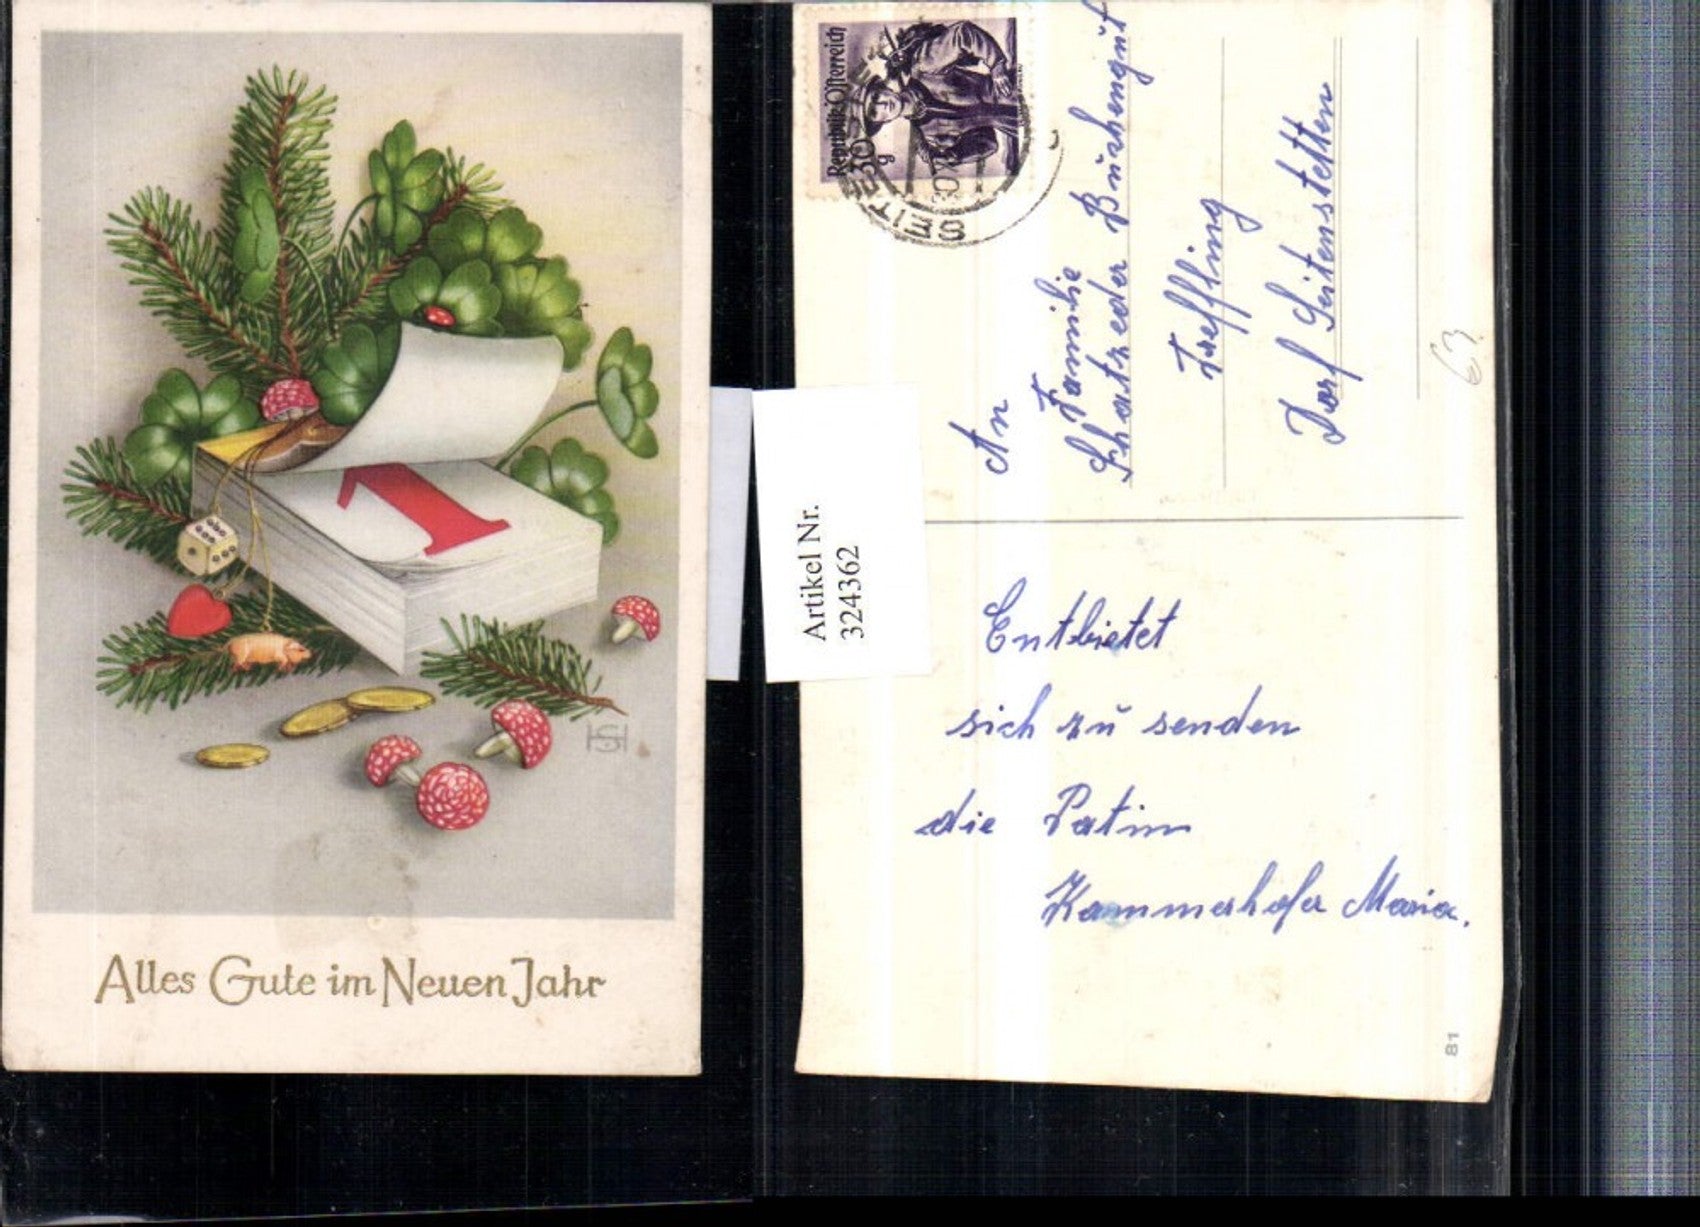 1
Alles Gute im Neuen Jahr
Artikel Nr.
324362
Republik Österreich
30 g
SEITE
An
Familie
Schatzeder Buchengut
Treffling
Dorf Seitenstetten
63
Entbietet
sich zu senden
die Patin
Kammerhofer Maria.
81